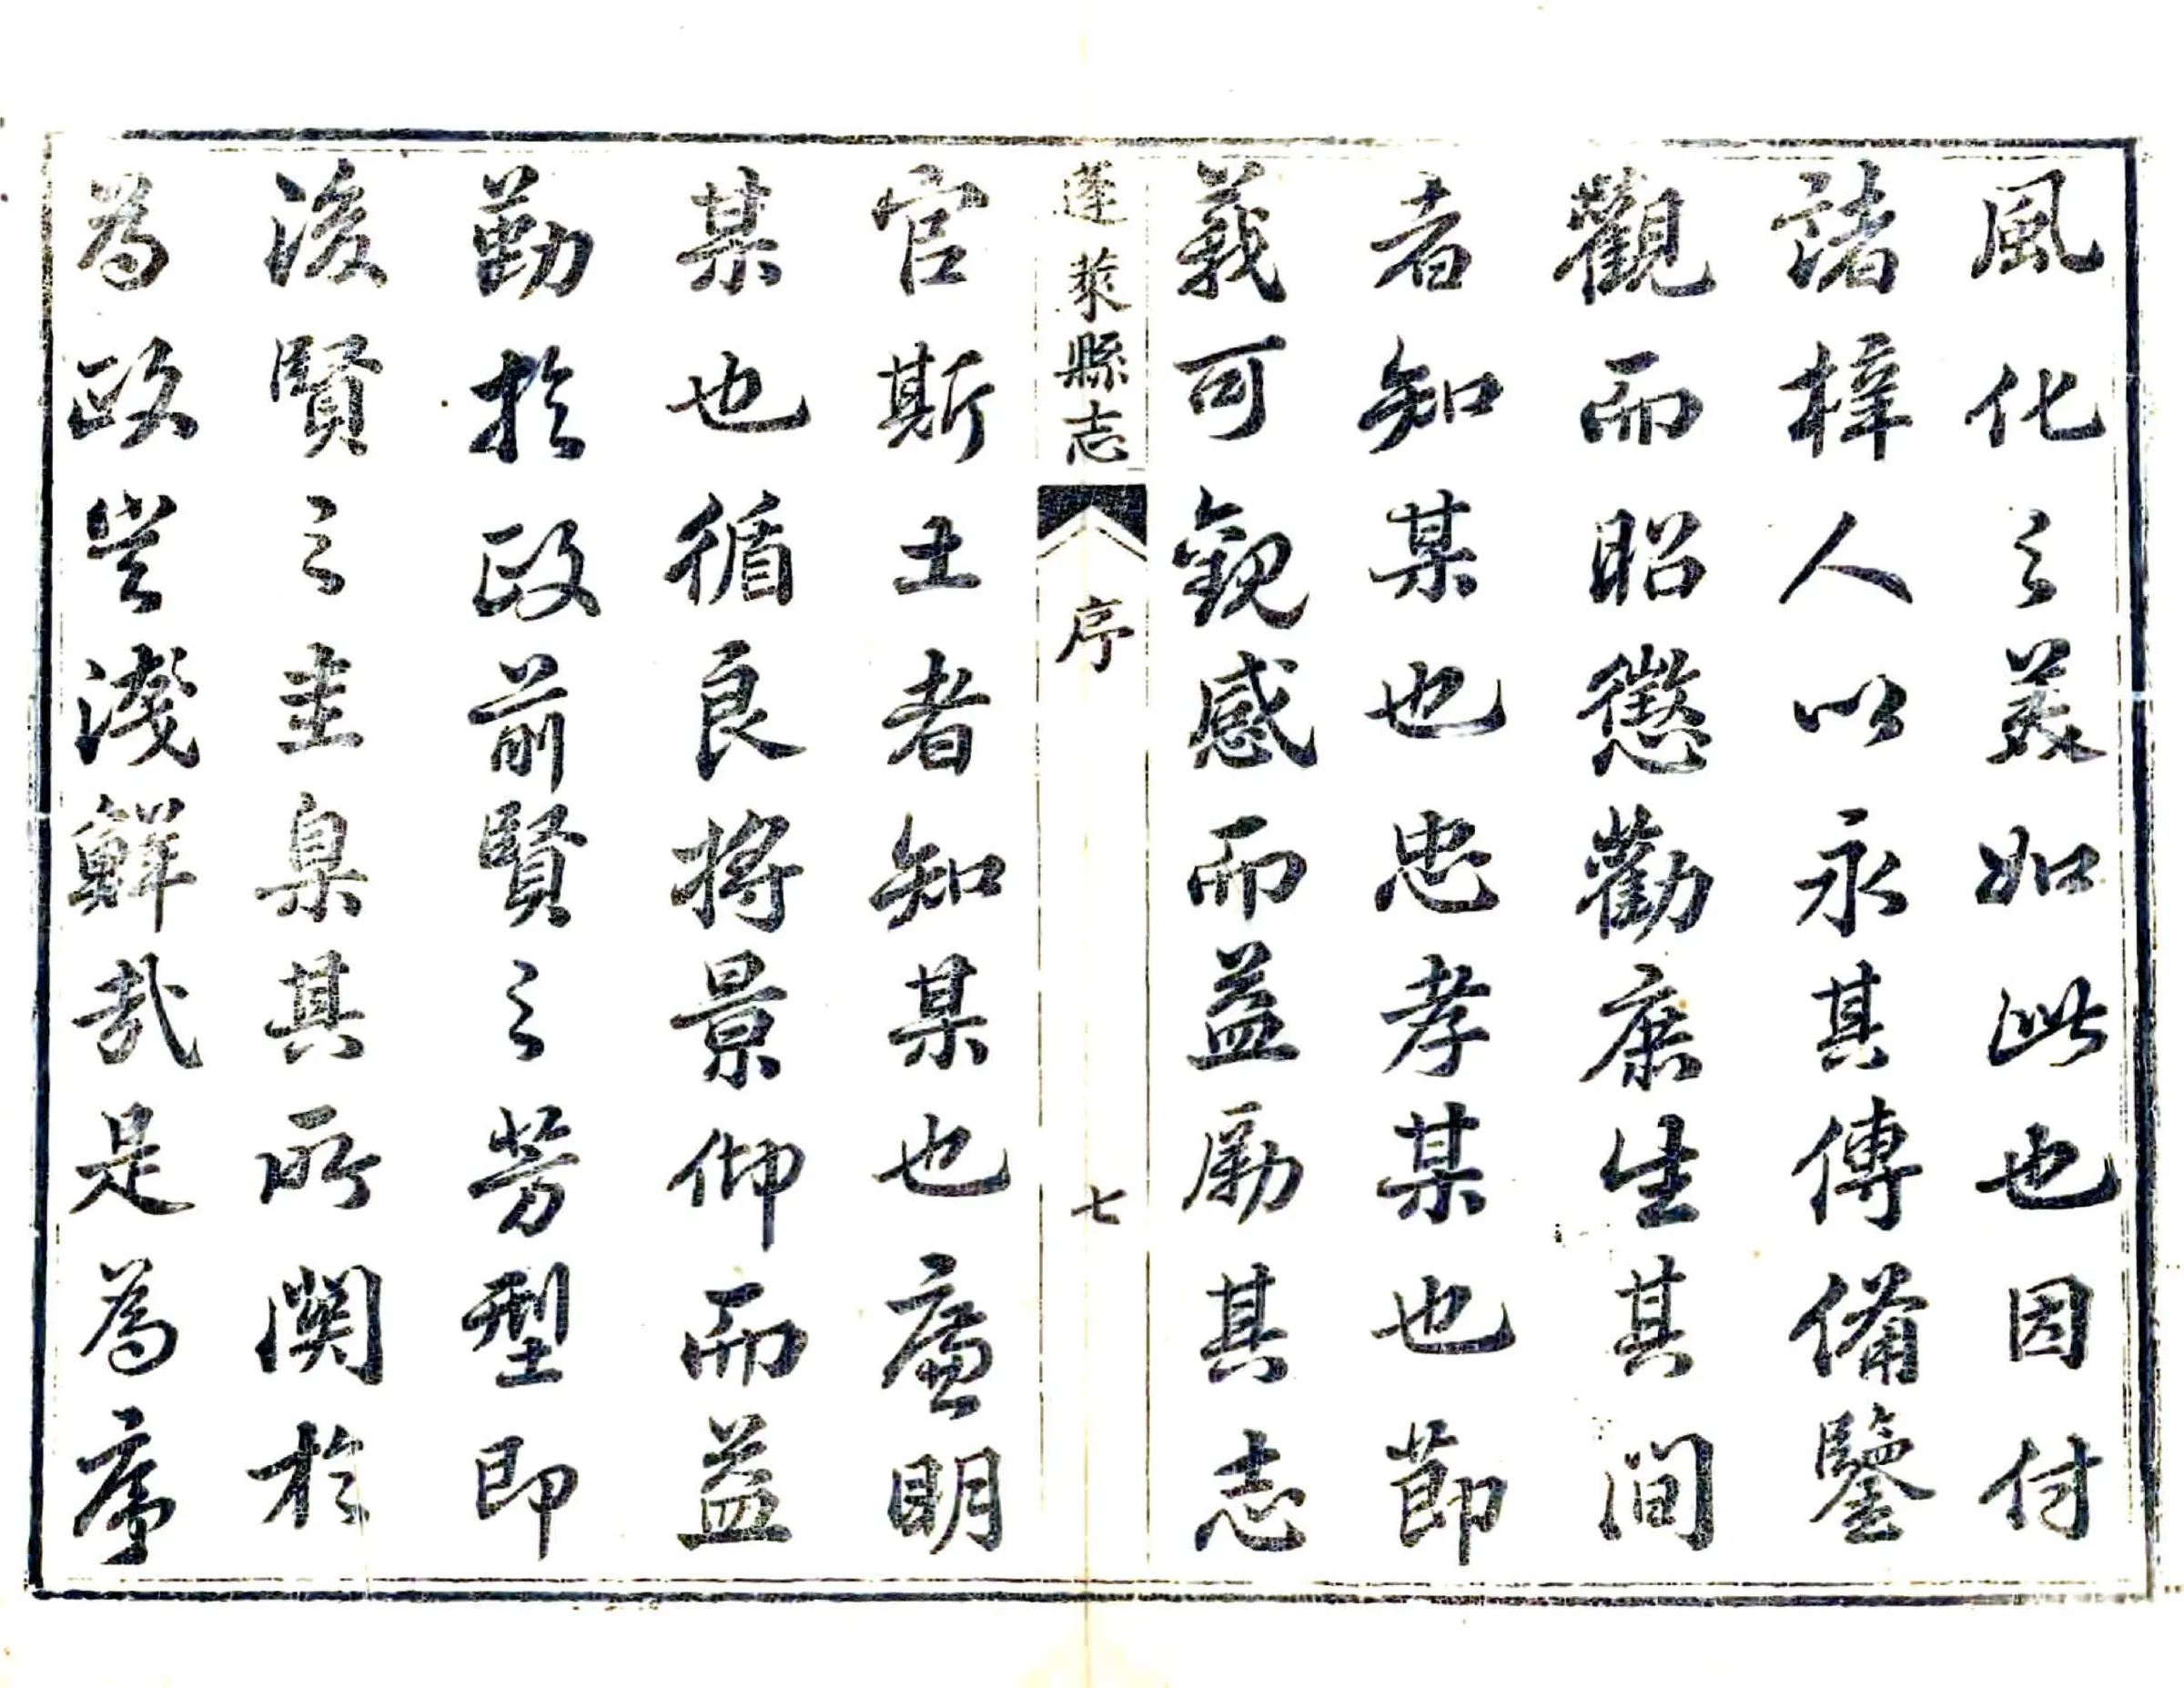 風化之美如此也因付
諸梓人以永其傳備鑒
觀而昭懲勸庶生其間
者知某也忠孝某也節
義可觀感而益勵其志
蓬萊縣志 序 七
官斯土者知某也廉明
某也循良將景仰而益
勤於政前賢之芳型即
後賢之圭臬其所關於
為政豈淺鮮哉是為序